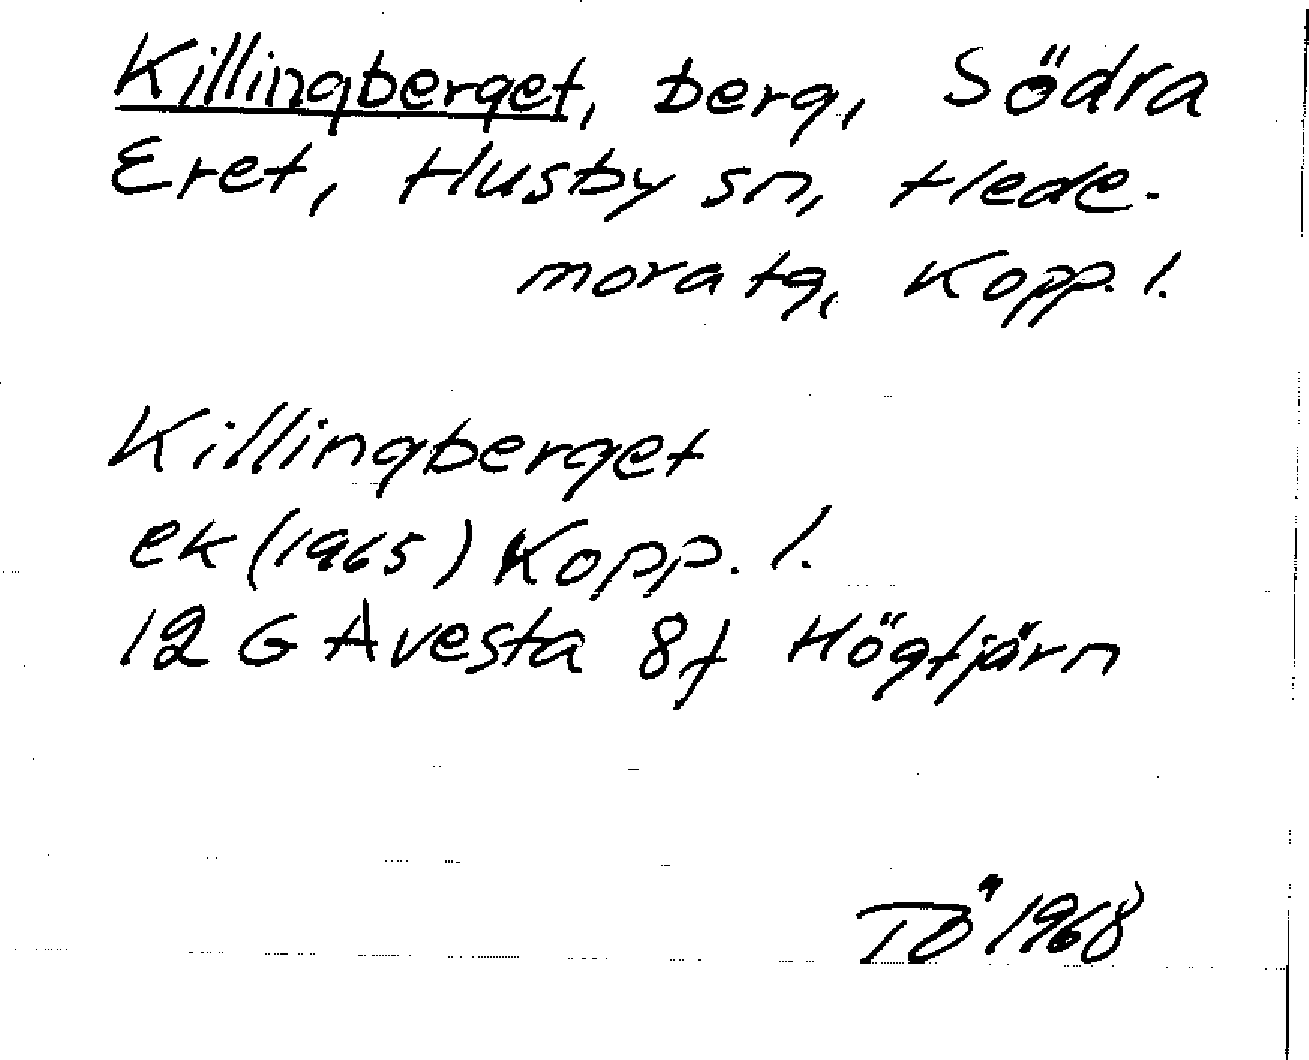 Killingberget, berg, Södra
Eret, Husby sn, Hede-
mora tg, Kopp. l.
Killingberget
ek (1965) Kopp. l.
12 G Avesta 8f Högtjärn
TÖ 1968